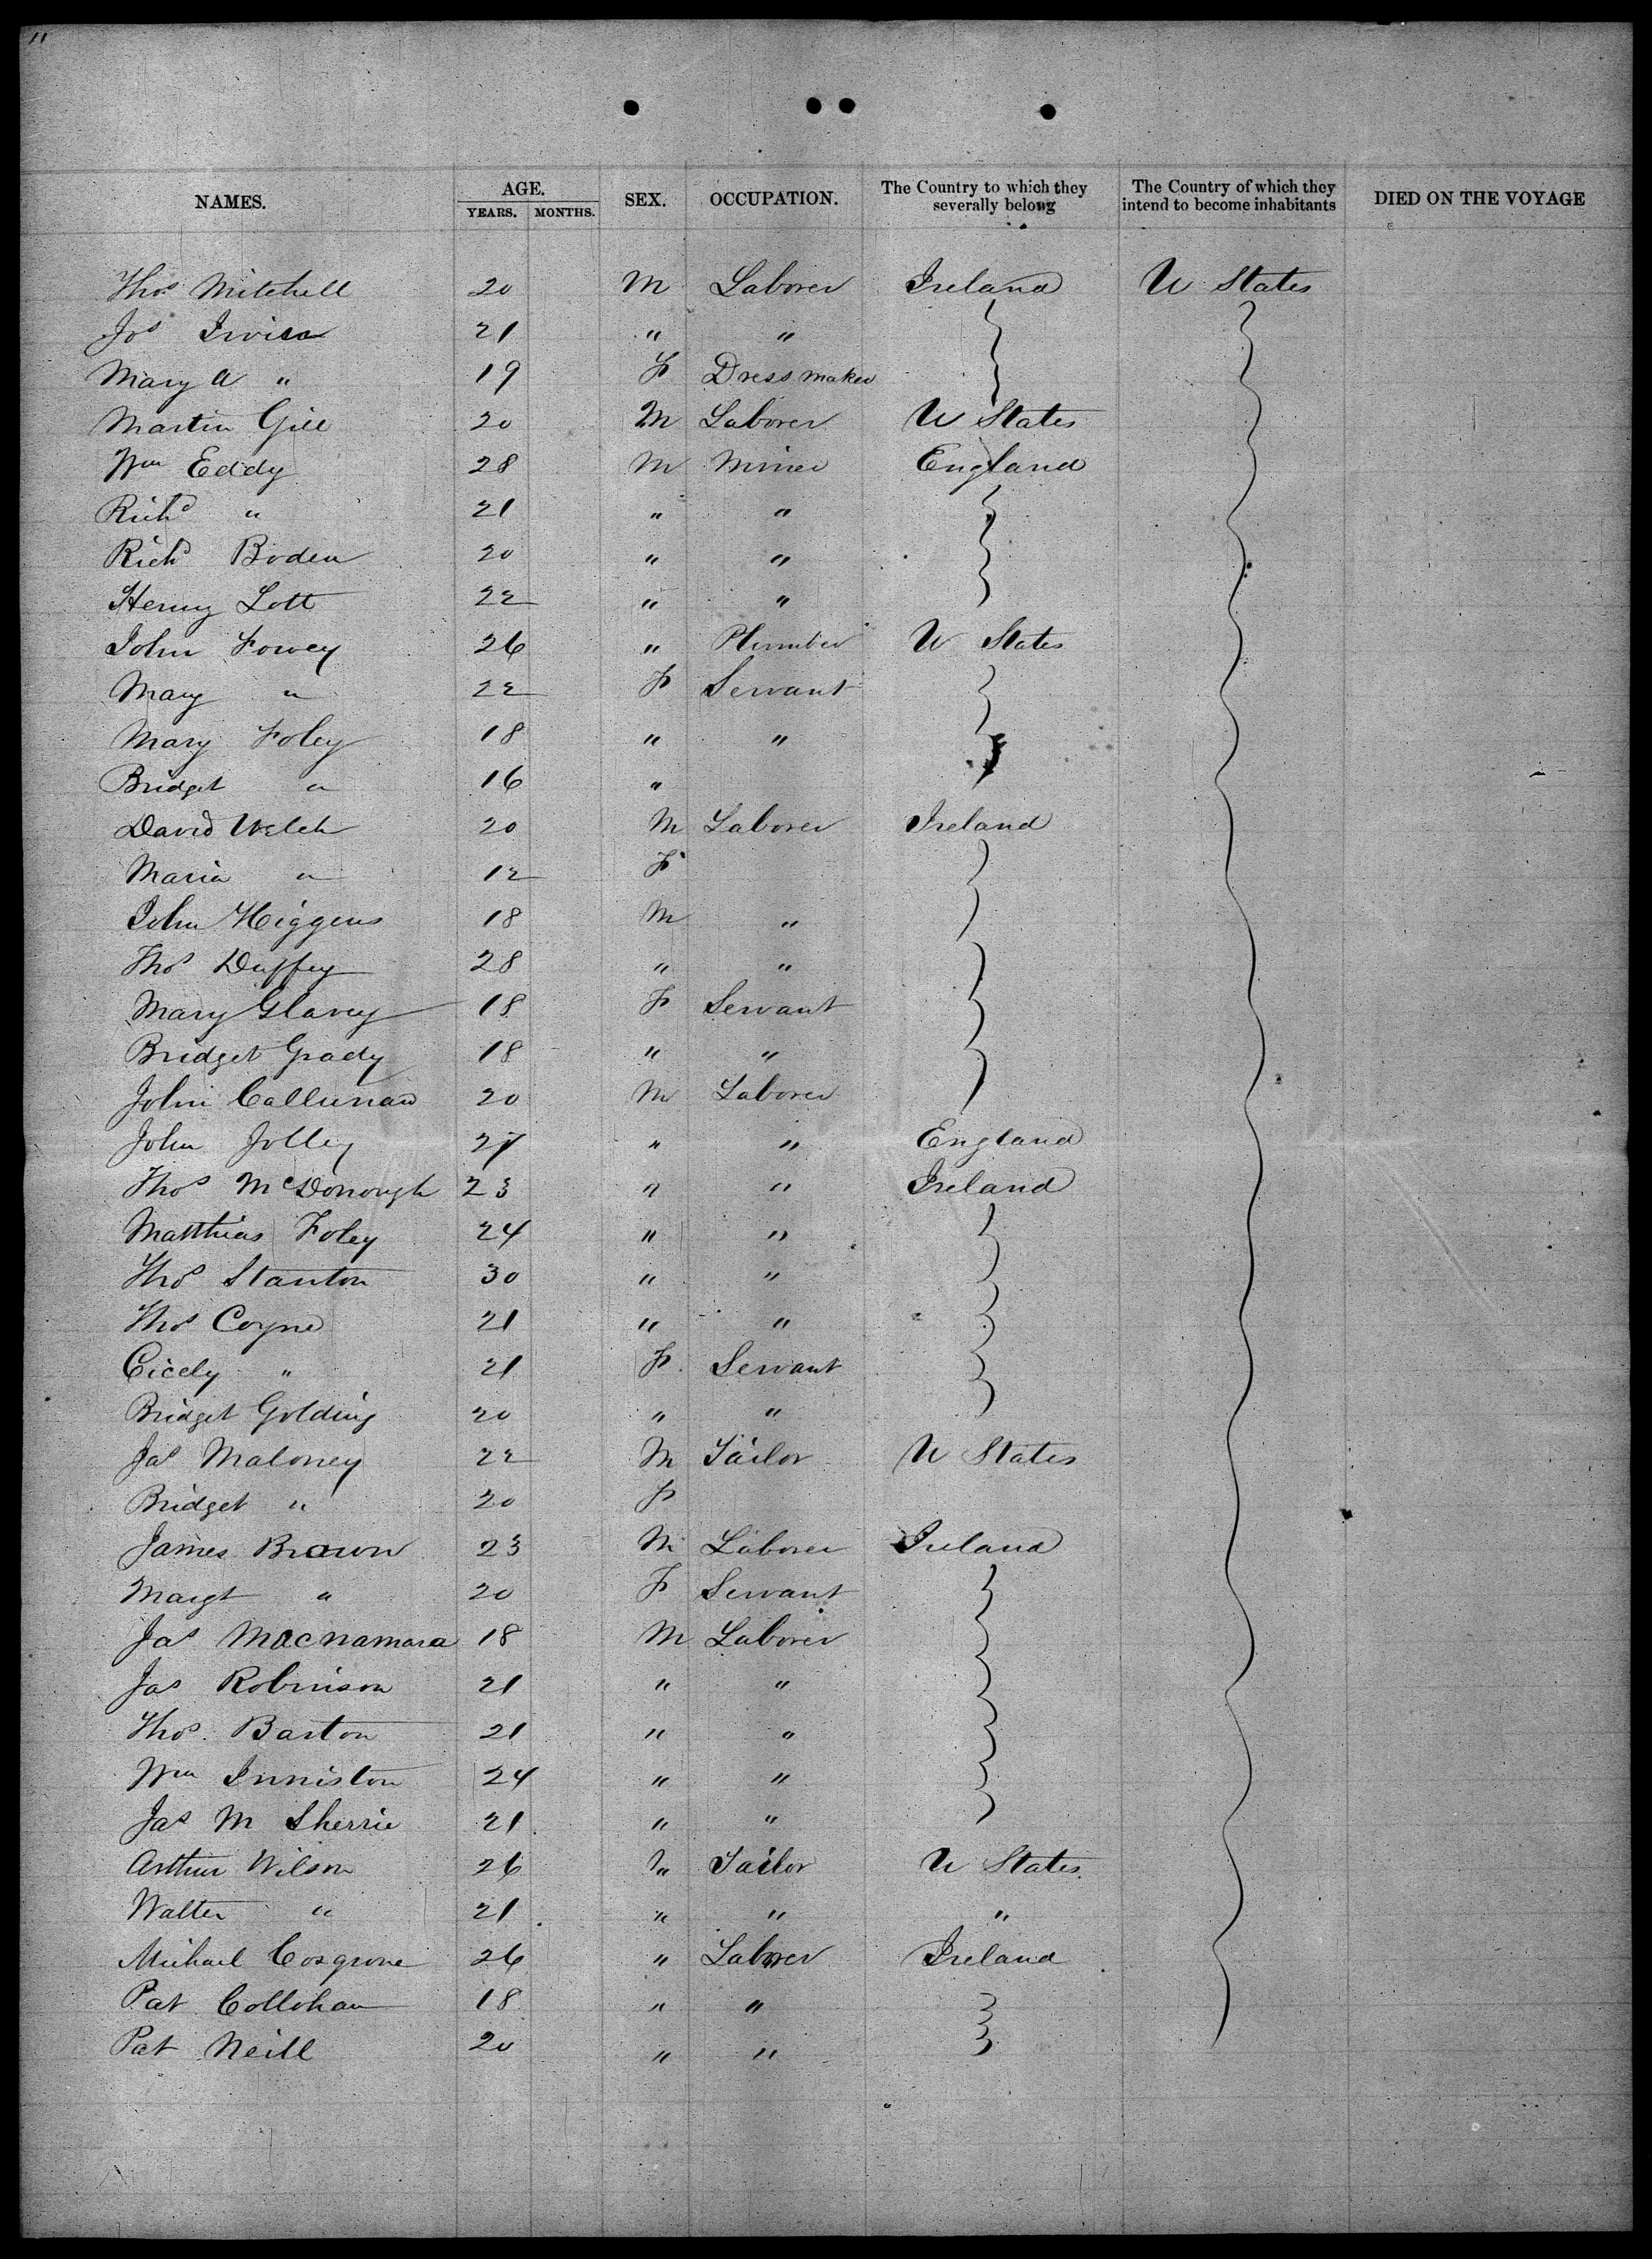 "
NAMES. AGE. YEARS. MONTHS. SEX. OCCUPATION. The Country to which they severally belong The Country of which they intend to become inhabitants DIED ON THE VOYAGE
Thos Mitchell 20 M Laborer Ireland U States
Jos 21 " "
Mary A " 19 F Dress maker
Martin Gill 20 M Laborer U States
Wm Eddy 28 M Miner England
Richd " 21 " "
Richd Boden 20 " "
Henry Lott 22 " "
John Fowey 26 " Plumber U States
Mary " 22 F Servant
Mary Foley 18 " "
Bridget " 16 "
David Welch 20 M Laborer Ireland
Maria " 12 F
John Higgens 18 M "
Thos Duffey 28 " "
Mary Glavey 18 F Servant
Bridget Grady 18 " "
John Callunan 20 M Laborer
John Jolley 27 " " England
Thos McDonough 23 " " Ireland
Matthias Foley 24 " "
Thos Stanton 30 " "
Thos Coyne 21 " "
Cicely " 21 F Servant
Bridget Golding 20 " "
Jas Maloney 22 M Tailor U States
Bridget " 20 F
James Brown 23 M Laborer Ireland
Margt " 20 F Servant
Jas Macnamara 18 M Laborer
Jas Robinson 21 " "
Thos. Barton 21 " "
Wm Inniston 24 " "
Jas M Sherrie 21 " "
Arthur Wilson 26 " Tailor U States
Walter " 21 " " "
Michael Cosgrove 26 " Laborer Ireland
Pat Collohan 18 " "
Pat Neill 20 " "